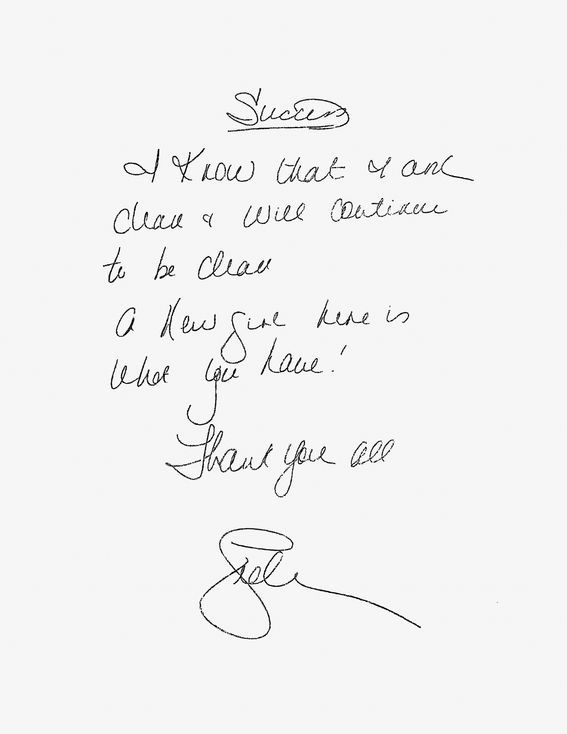 Success
I Know that I am
clean & will continue
to be clean
A New girl here is
what you have!
Thank you all